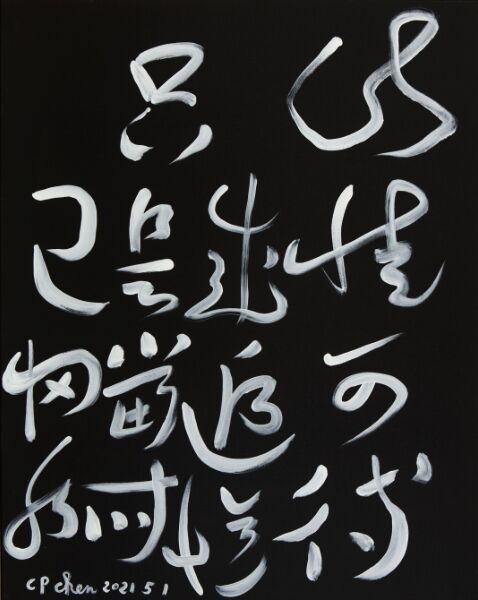 此情可待
成追憶
只是當時
已惘然
CP chen 2021 5 1